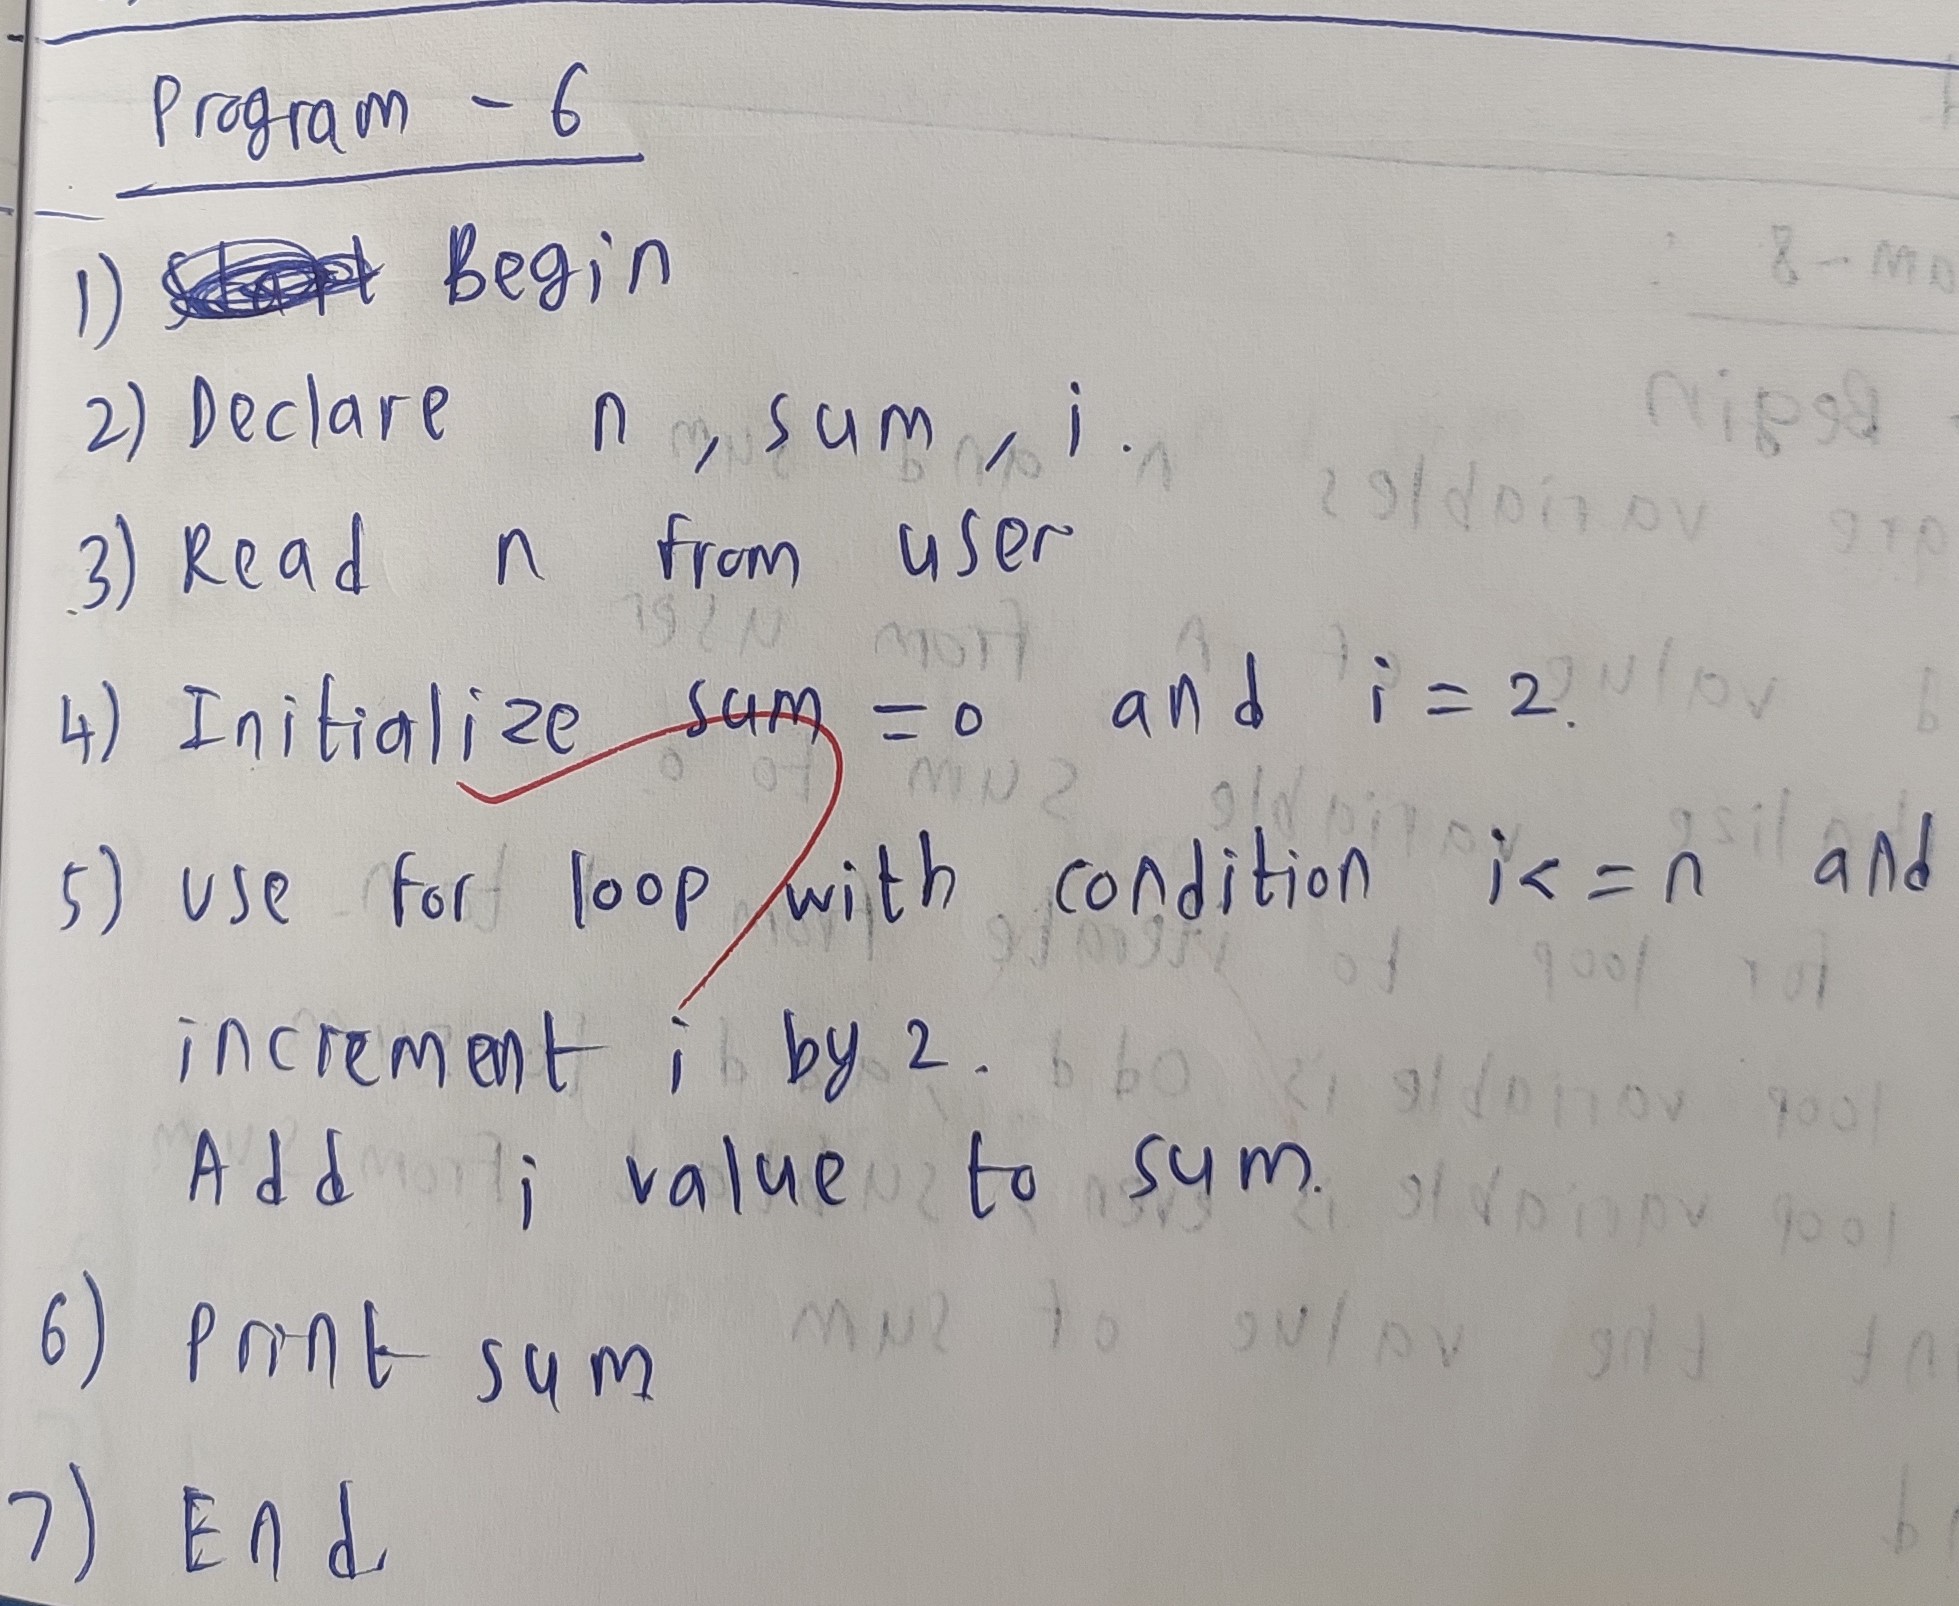 Program - 6
1) Begin
2) Declare n, sum, i.
3) Read n from user
4) Initialize sum = 0 and i = 2.
5) use for loop with condition i<=n and
increment i by 2.
Add i value to sum.
6) Print sum
7) End